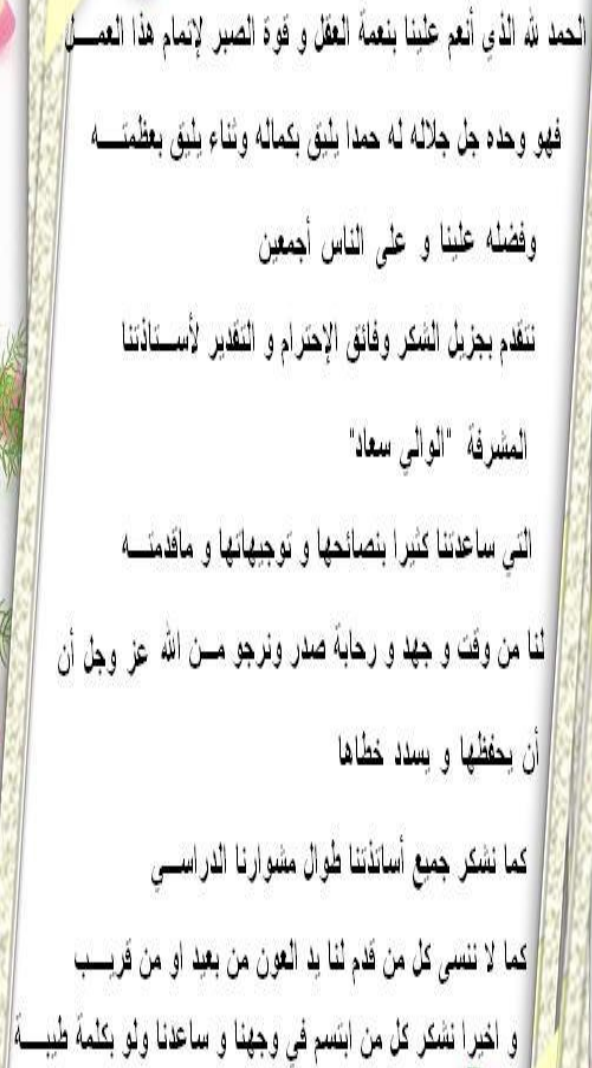 الحمد لله الذي أنعم علينا بنعمة العقل و قوة الصبر لإتمام هذا العمـــل
فهو وحده جل جلاله له حمدا يليق بكماله وثناء يليق بعظمتـــه
وفضله علينا و على الناس أجمعين
نتقدم بجزيل الشكر وفائق الإحترام و التقدير لأســـتاذتنا
المشرفة "الوالي سعاد"
التي ساعدتنا كثيرا بنصائحها و توجيهاتها و ماقدمتـــه
لنا من وقت و جهد و رحابة صدر ونرجو مـــن الله عز وجل أن
أن يحفظها و يسدد خطاها
كما نشكر جميع أساتذتنا طوال مشوارنا الدراســـي
كما لا ننسى كل من قدم لنا يد العون من بعيد او من قريـــب
و اخيرا نشكر كل من ابتسم في وجهنا و ساعدنا ولو بكلمة طيبـــة